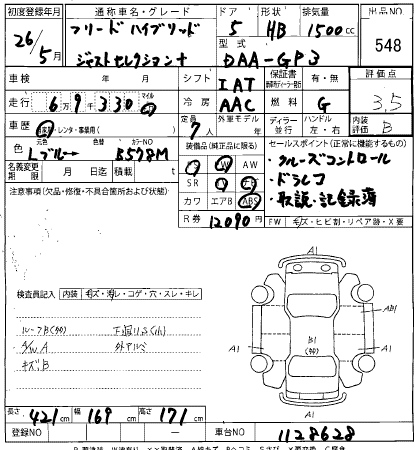 初度登録年月 通称車名・グレード ドア 形状 排気量 出品NO
26年 フリードハイブリッド 5 HB 1500cc 548
5月 ジャストセレクション+ 型式 DAA-GP3
車検 年 月 シフト IAT 保証書 有・無 評価点
走行 6万9千330 マイル km 冷房 AAC 燃料 G 3.5
車歴 自家用・レンタ・事業用( ) 定員 7人 外車モデル 年 ディーラー 並行 ハンドル 左・右 内装 B
元色 色替 カラーNO 装備品(純正品に限る) セールスポイント(正常に機能するもの)
Lブルー→ B578M PS PW AW ・クルーズコントロール
名義変更期限 月 日迄 積載 t SR ナビ ・ドラレコ
注意事項(欠品・修復・不具合箇所および状態) カワ エアB ABS ・取説・記録簿
R券 12090円 FW キズ・ヒビ割・リペア跡・X要
検査員記入 内装 キズ・汚レ・コゲ・穴・スレ・キレ
A1
ルーフB(多) 下廻りS(小)
A/W A 外アルミ
キズB
AB1
B1
(多)
A1 A1
A1
長さ 421cm 幅 169cm 高さ 171cm
登録NO 車台NO 1128628